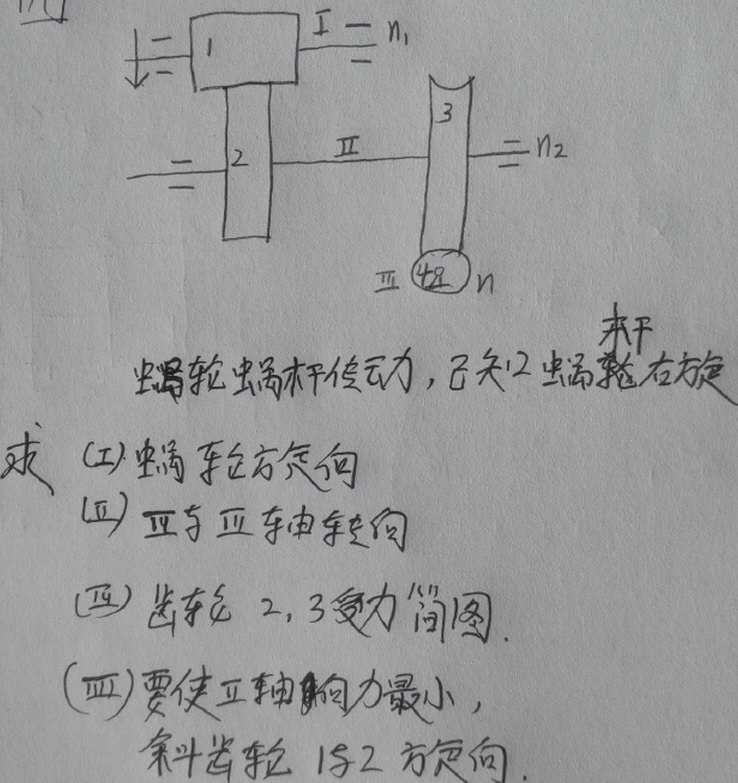 例
I
n₁
1
2
II
3
n₂
III
4
n
杆
蜗轮蜗杆传动力,已知蜗右旋
求 (I) 蜗轮方旋向
(II) II与III轴转向
(III) 齿轮 2,3受力简图.
(IIII) 要使II轴向力最小,
斜齿轮 1与2 方旋向.